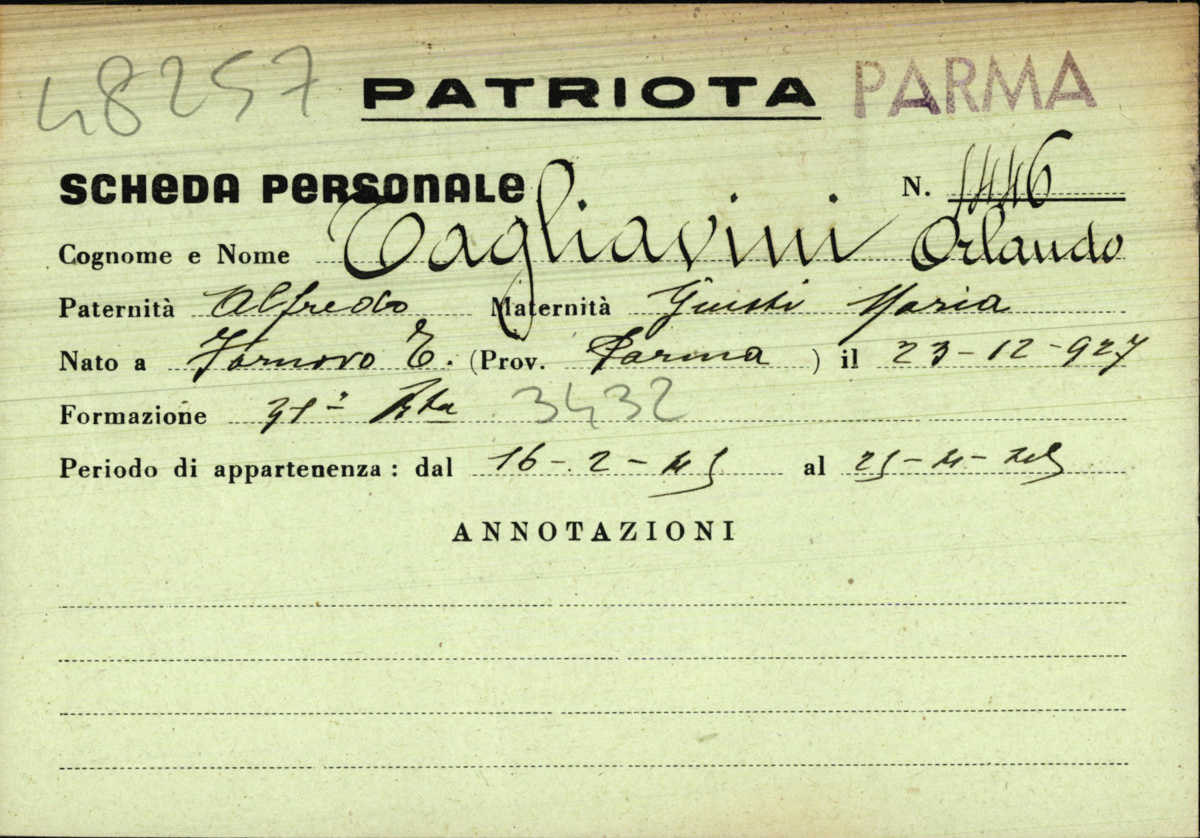 48257 PATRIOTA PARMA
SCHEDA PERSONALE N. 1446
Cognome e Nome Tagliavini Orlando
Paternità Alfredo Maternità Giusti Maria
Nato a Fornovo E. (Prov. Parma) il 23-12-927
Formazione 31ª 3432
Periodo di appartenenza: dal 16-2-45 al 25-4-45
ANNOTAZIONI